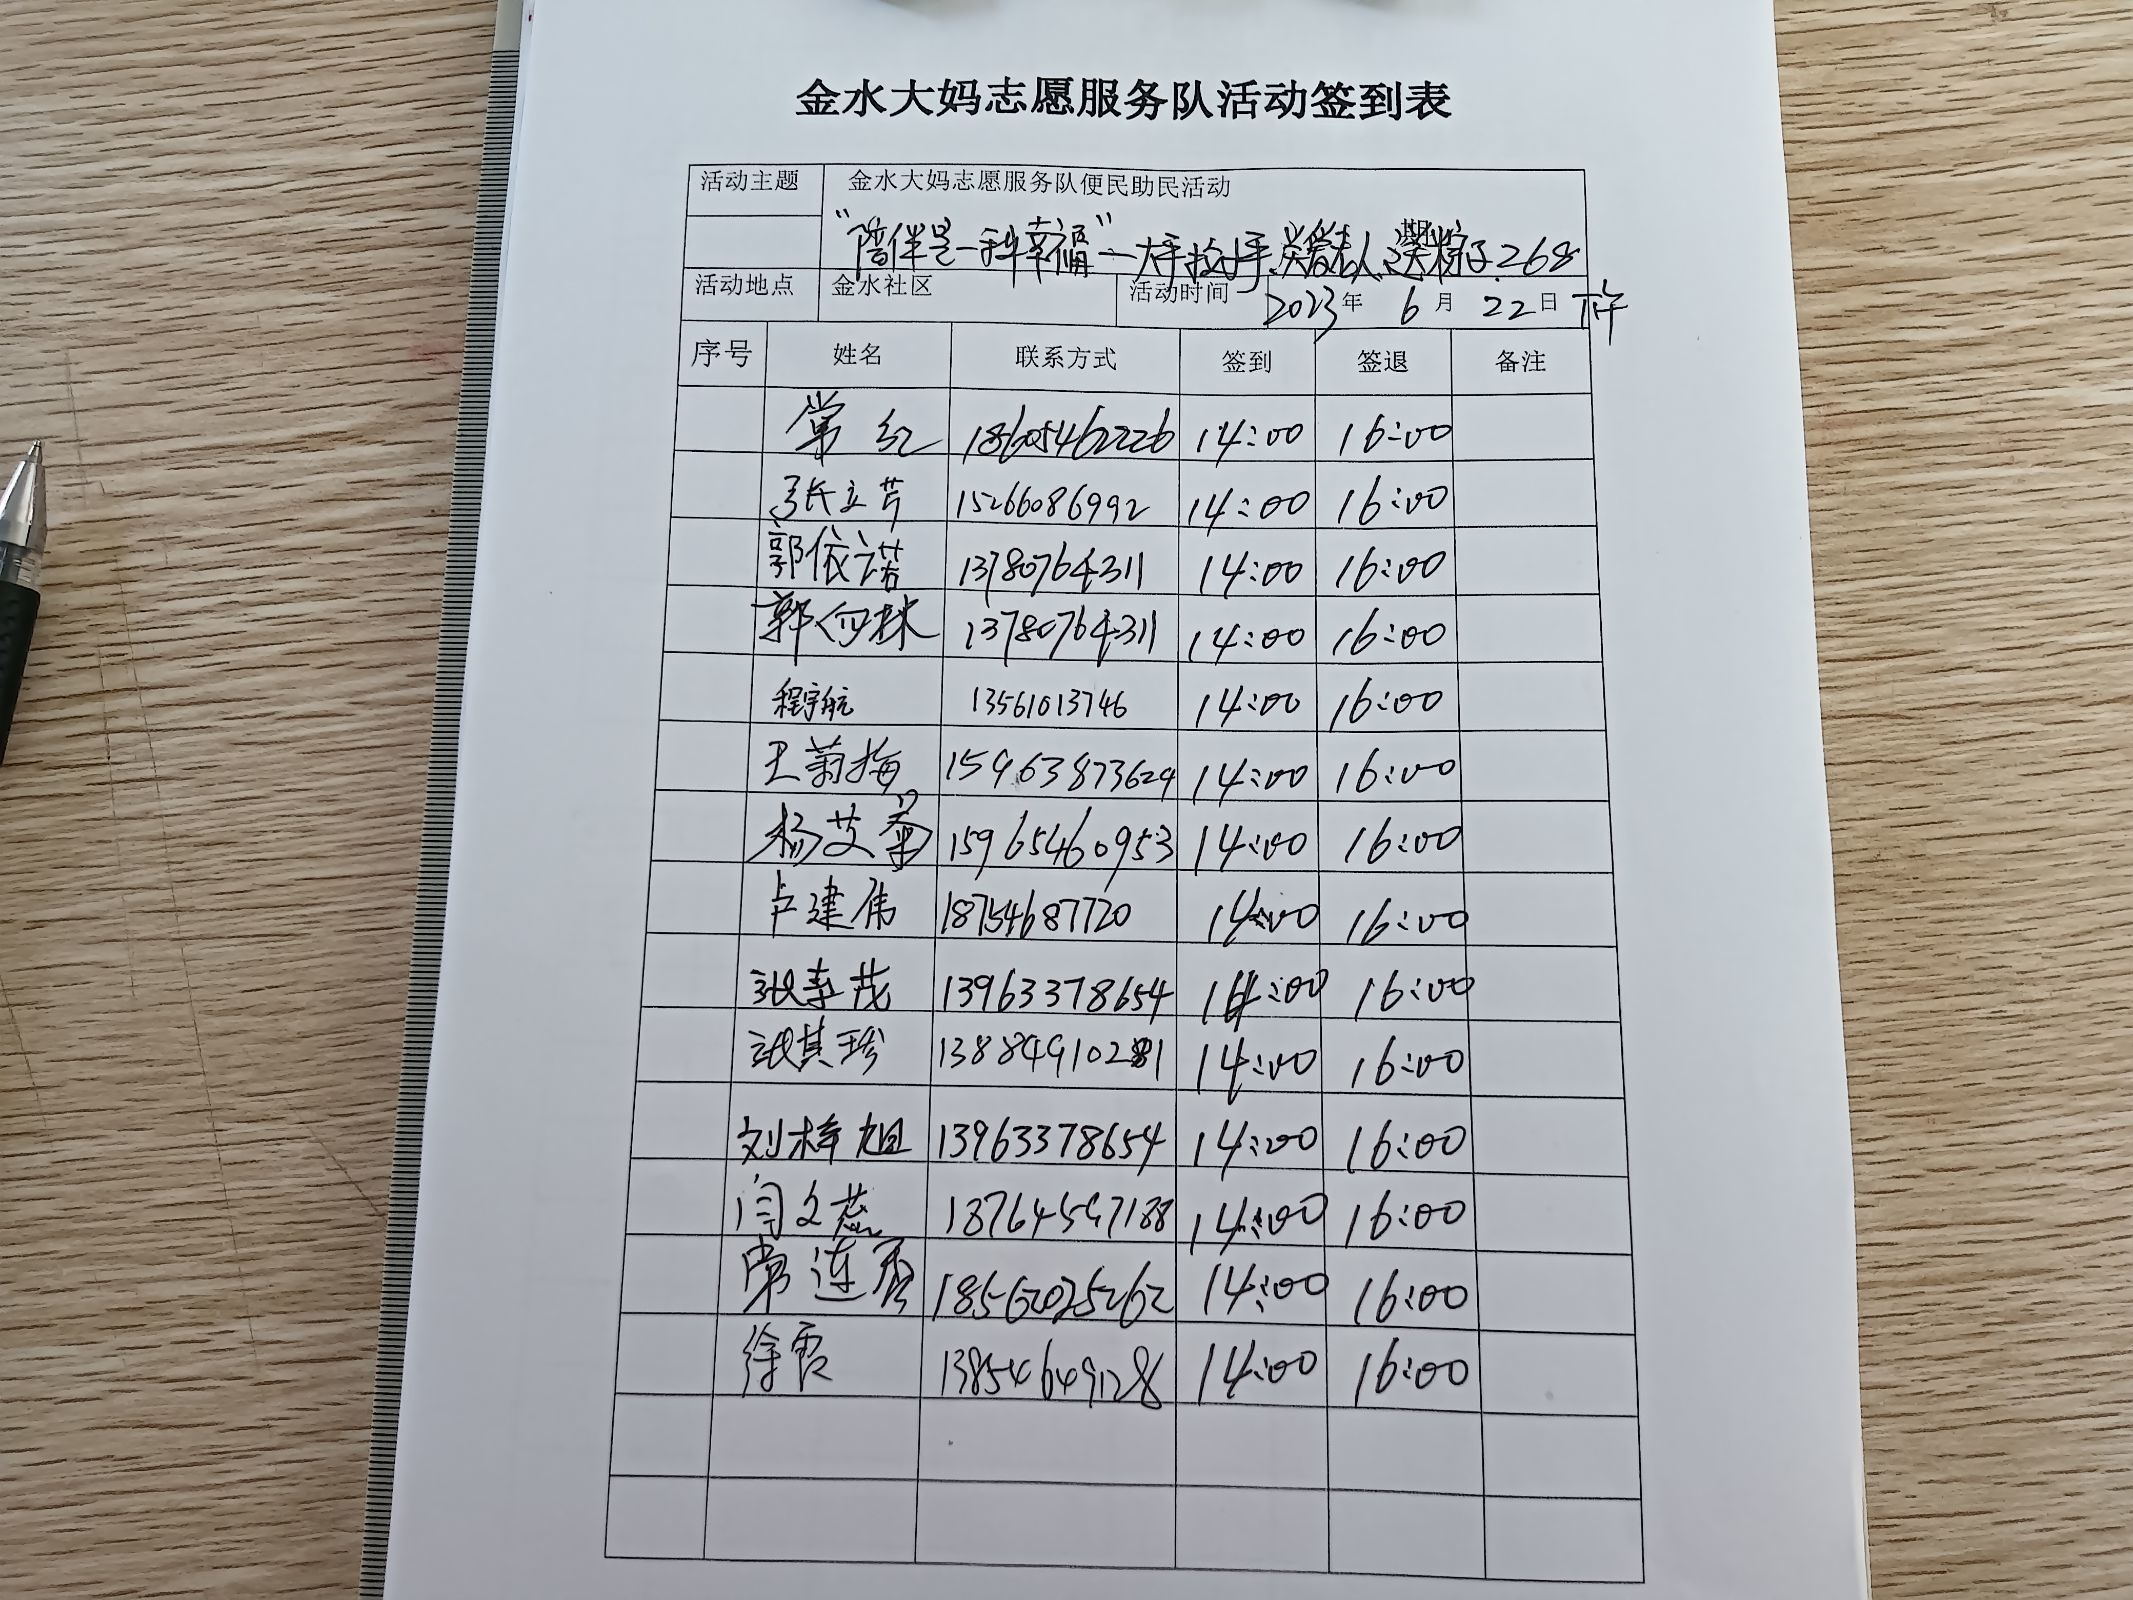 金水大妈志愿服务队活动签到表
活动主题 金水大妈志愿服务队便民助民活动
“陪伴是一种幸福”—大手拉小手,关爱老人,送粽子268期
活动地点 金水社区 活动时间 2023年 6月 22日 下午
序号 姓名 联系方式 签到 签退 备注
常红 18605462226 14:00 16:00
张立芹 15266086992 14:00 16:00
郭依诺 13780764311 14:00 16:00
郭向林 13780764311 14:00 16:00
程宇航 13561013746 14:00 16:00
王菊梅 15963873624 14:00 16:00
杨艾菊 15965460953 14:00 16:00
卢建伟 18754687720 14:00 16:00
张春茂 13963378654 14:00 16:00
张其珍 13884910281 14:00 16:00
刘梓旭 13963378654 14:00 16:00
闫文蕊 18764597188 14:00 16:00
常连 18562025262 14:00 16:00
徐霞 13854649128 14:00 16:00